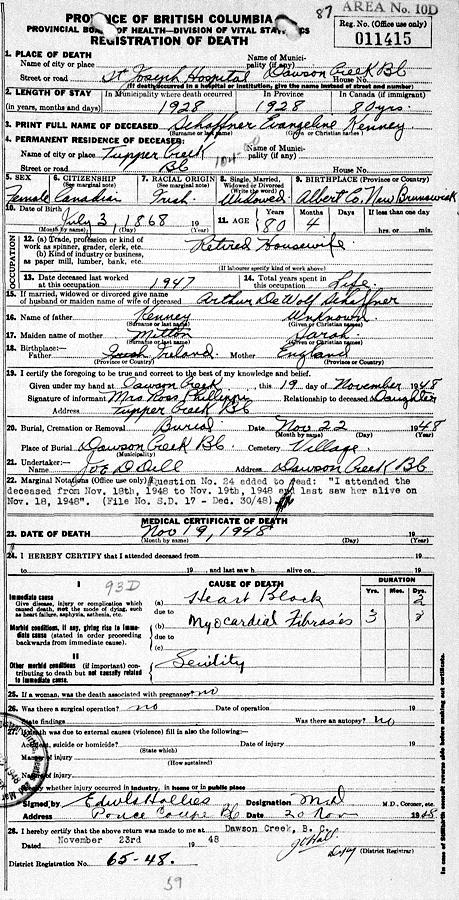 87 AREA No. 10D
PROVINCE OF BRITISH COLUMBIA
PROVINCIAL BOARD OF HEALTH—DIVISION OF VITAL STATISTICS
REGISTRATION OF DEATH
Reg. No. (Office use only)
011415
1. PLACE OF DEATH
Name of city or place Name of Municipality (if any) Dawson Creek BC
Street or road St Joseph Hospital House No.
(If death occurred in a hospital or institution, give the name instead of street and number)
2. LENGTH OF STAY In Municipality where death occurred In Province In Canada (if immigrant)
(in years, months and days) 1928 1928 80 yrs.
3. PRINT FULL NAME OF DECEASED Schaffner Evangeline Kenney
(Surname or last name) (Given or Christian names)
4. PERMANENT RESIDENCE OF DECEASED:
Name of city or place Tupper Creek Name of Municipality (if any)
Street or road BC House No.
5. SEX 6. CITIZENSHIP 7. RACIAL ORIGIN 8. Single, Married, Widowed or Divorced 9. BIRTHPLACE (Province or Country)
(See marginal note) (See marginal note) (Write the word)
Female Canadian Irish Widowed Albert Co. New Brunswick
10. Date of Birth July 3, 1868 19 11. AGE Years 80 Months 4 Days If less than one day
(Month by name) hrs. or min.
OCCUPATION
12. (a) Trade, profession or kind of work as spinner, grader, clerk, etc. Retired Housewife
(b) Kind of industry or business, as paper mill, lumber, bank, etc.
(If labourer specify kind of work above)
13. Date deceased last worked at this occupation 1947 14. Total years spent in this occupation Life
15. If married, widowed or divorced give name of husband or maiden name of wife of deceased Arthur DeWolf Schaffner
16. Name of father Kenney Unknown
(Surname or last name) (Given or Christian names)
17. Maiden name of mother Mitton Sarah
(Surname or last name) (Given or Christian names)
18. Birthplace:—
Father Irish Ireland Mother England
(Province or Country) (Province or Country)
19. I certify the foregoing to be true and correct to the best of my knowledge and belief.
Given under my hand at Dawson Creek, this 19 day of November 1948
Signature of informant Mrs Ross Relationship to deceased Daughter
Address Tupper Creek BC
20. Burial, Cremation or Removal Burial Date Nov 22 1948
(Month by name) (Day)
Place of Burial Dawson Creek BC Cemetery Village
(Municipality)
21. Undertaker:—
Name Joe O'Dell Address Dawson Creek BC
22. Marginal Notations (Office use only) Question No. 24 added to read: "I attended the
deceased from Nov. 18th, 1948 to Nov. 19th, 1948 and last saw her alive on
Nov. 18, 1948". (File No. S.D. 17 - Dec. 30/48).
MEDICAL CERTIFICATE OF DEATH
23. DATE OF DEATH Nov 19, 1948 19
(Month by name) (Day)
24. I HEREBY CERTIFY that I attended deceased from
to 19 and last saw h alive on 19
I 93D CAUSE OF DEATH DURATION
Yrs. Mos. Dys.
Immediate cause
Give disease, injury or complication which caused death, not the mode of dying, such as heart failure, asphyxia, asthenia, etc.
(a) Heart Block 2
due to
Morbid conditions, if any, giving rise to immediate cause (stated in order proceeding backwards from immediate cause).
(b) Myocardial Fibrosis 3
due to
(c)
II
Other morbid conditions (if important) contributing to death but not causally related to immediate cause.
Senility
25. If a woman, was the death associated with pregnancy? no
26. Was there a surgical operation? no Date of operation 19
State findings Was there an autopsy? no
27. If death was due to external causes (violence) fill in also the following:—
Accident, suicide or homicide? Date of injury 19
(State which)
Manner of injury
(How sustained)
Nature of injury
Specify whether injury occurred in industry, in home or in public place
Signed by Designation MD M.D., Coroner, etc.
Address Pouce Coupe BC Date 20 Nov
28. I hereby certify that the above return was made to me at Dawson Creek, B. C.
Dated November 23rd 19 48
(District Registrar)
District Registration No. 65-48.
59